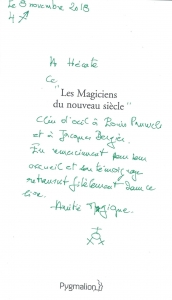 Le 8 novembre 2018
A Hécate
Ce
"Les Magiciens
du nouveau siècle"
clin d'oeil à Louis Pauwels
et à Jacques Bergier.
En remerciement pour son
accueil et son témoignage
retranscrit fidèlement dans ce
livre.
Amitié Magique.
Pygmalion